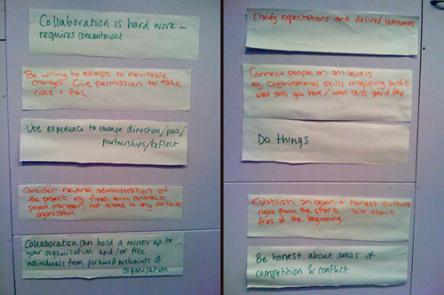 Collaboration is hard work –
requires commitment
Be willing to adapt to inevitable
changes. Give permission to take
risks + fail
Use experience to change direction/
partnerships/reflect
Consider neutral administration of
the project eg fixed-term contract
project manager, not related to any partner
organisation
Collaboration can hold a mirror up to
your organisation and/or free
individuals from perceived restraints of
organisation
Clarify expectations and desired outcomes
Connect people on all levels
eg Organisational skills mapping audit
what skills you have / what skills you'd like
Do things
Establish an open + honest culture
right from the start. Talk about
fears at the beginning.
Be honest about areas of
competition & conflict